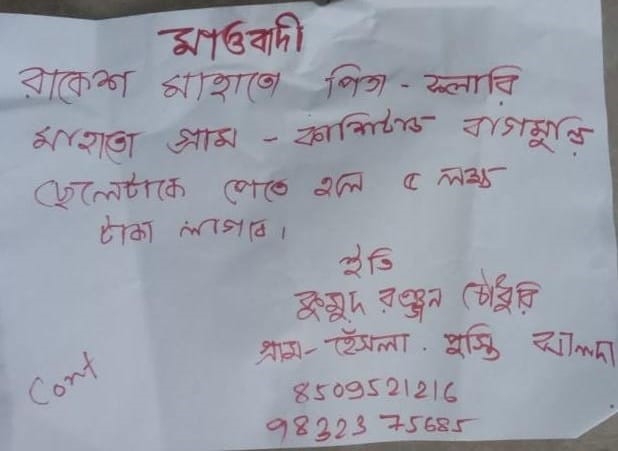 মাওবাদী
রাকেশ মাহাতো পিতা - ফলারি
মাহাতো গ্রাম - কাশিটাড বাগমুন্ডি
ছেলেটাকে পেতে হলে ৫ লক্ষ
টাকা লাগবে।
ইতি
কুমুদ রঞ্জন চৌধুরি
গ্রাম- হেঁসলা . পুস্তি ঝালদা
Cont
8509521216
98323 75685